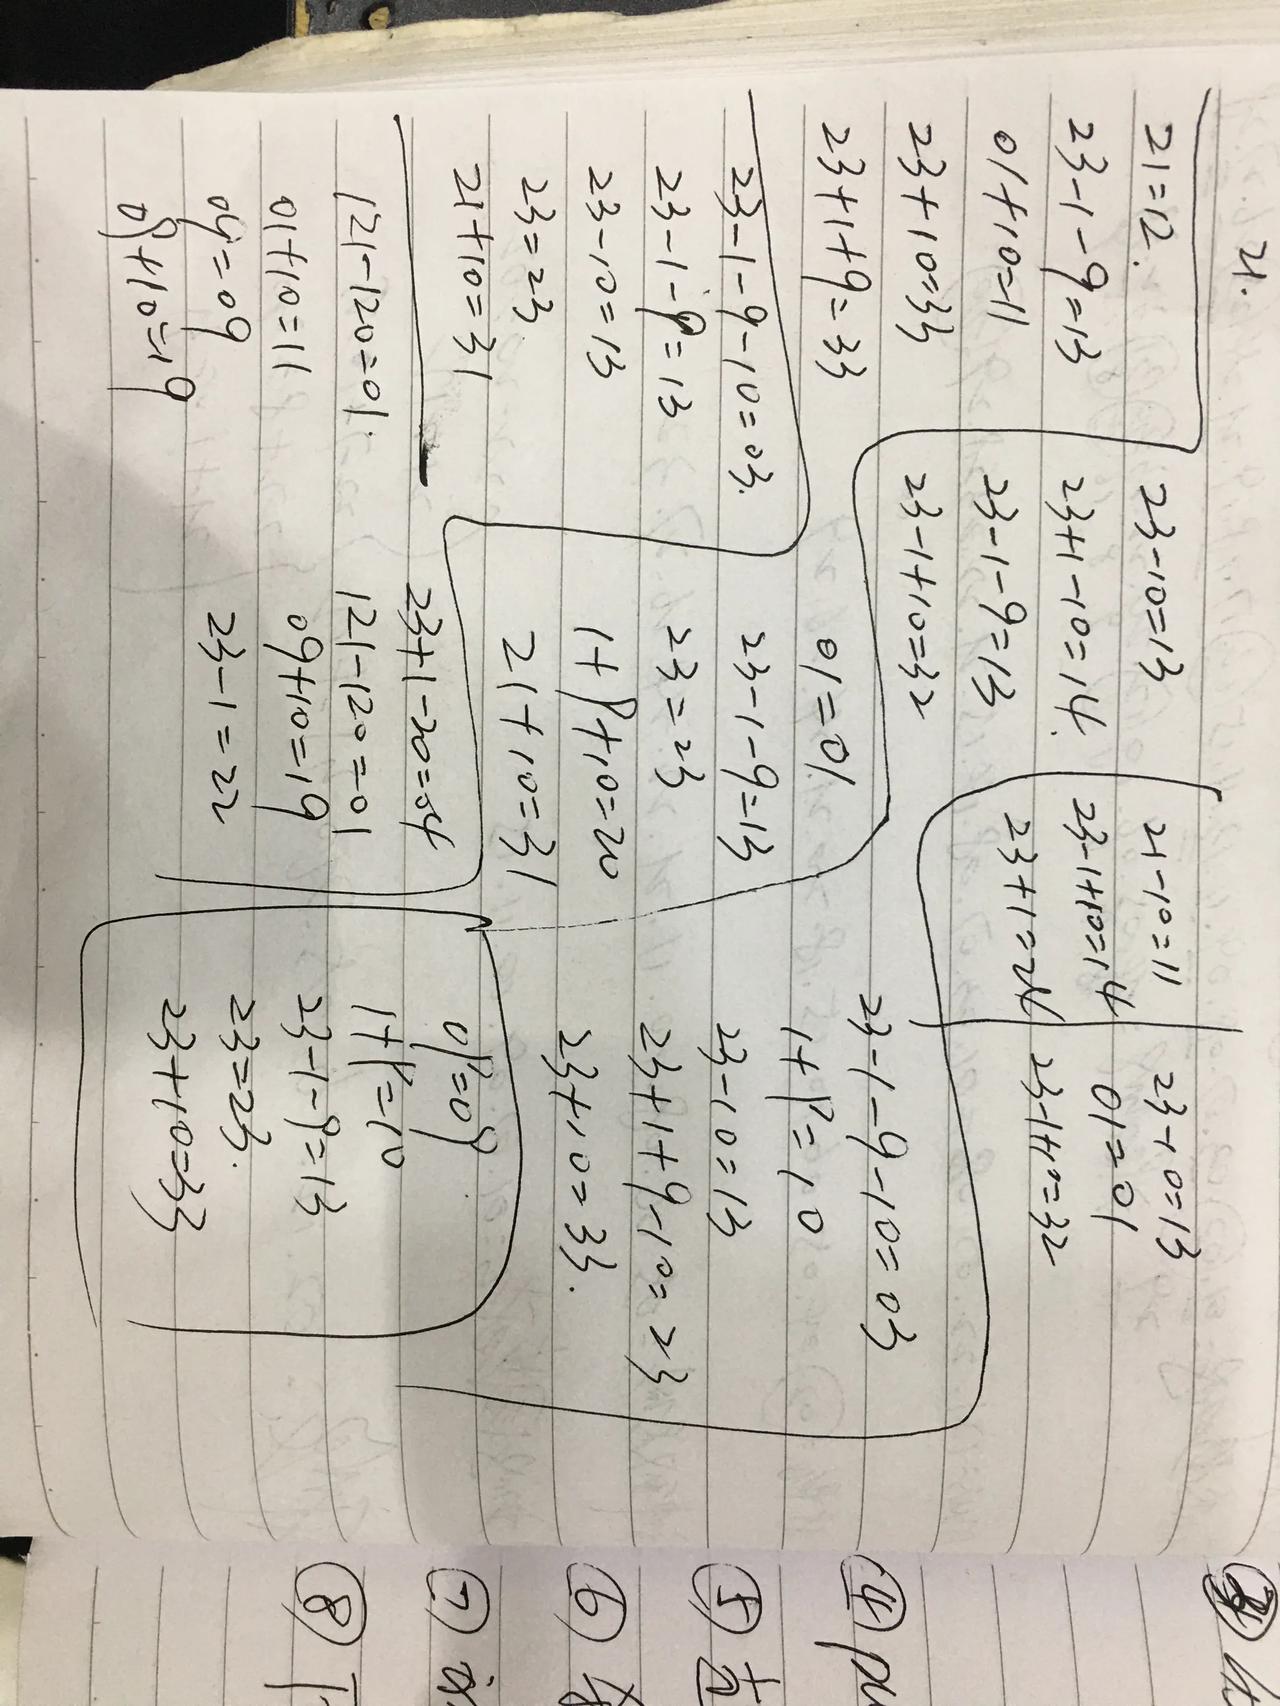 21.
21=12.
23-1-9=13
01+10=11
23+10=33
23+1+9=33
23-10=13
23+1-10=14.
23-1-9=13
23-1+10=32
21-10=11
23-1+10=14
23+1=24
23-10=13
01=01
23-1+10=32
23-1-9-10=03.
23-1-9=13
23-10=13
23=23
21+10=31
01=01
23-1-9=13
23=23
1+9+10=20
21+10=31
23-1-9-10=03
1+9=10
23-10=13
23+1+9-10=23
23+10=33.
121-120=01.
01+10=11
09=09
09+10=19
23+1-20=04
121-120=01
09+10=19
23-1=22
09=09
1+9=10
23-1-9=13
23=23.
23+10=33
④
⑤
⑥
⑦
⑧